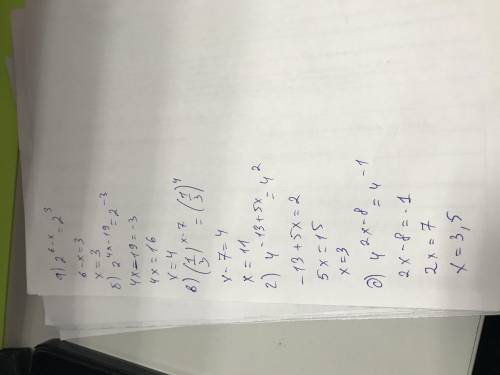 а) 2^{6-x} = 2^3
6-x=3
x=3
б) 2^{4x-19} = 2^{-3}
4x-19=-3
4x=16
x=4
в) (1/3)^{x-7} = (1/3)^4
x-7=4
x=11
г) 4^{-13+5x} = 4^2
-13+5x=2
5x=15
x=3
д) 4^{2x-8} = 4^{-1}
2x-8=-1
2x=7
x=3,5